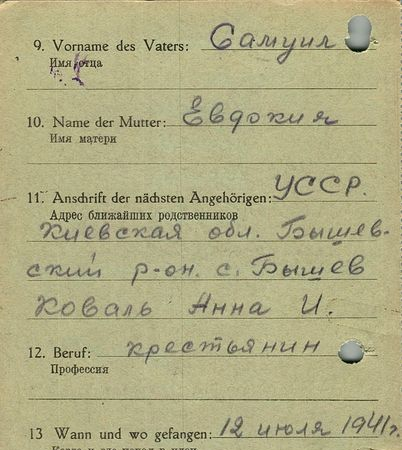 9. Vorname des Vaters: Самуил
Имя отца
10. Name der Mutter: Евдокия
Имя матери
11. Anschrift der nächsten Angehörigen: УССР.
Адрес ближайших родственников
Киевская обл. Бышев-
ский р-он. с. Бышев
Коваль Анна И.
12. Beruf: крестьянин
Профессия
13 Wann und wo gefangen: 12 июля 1941 г.